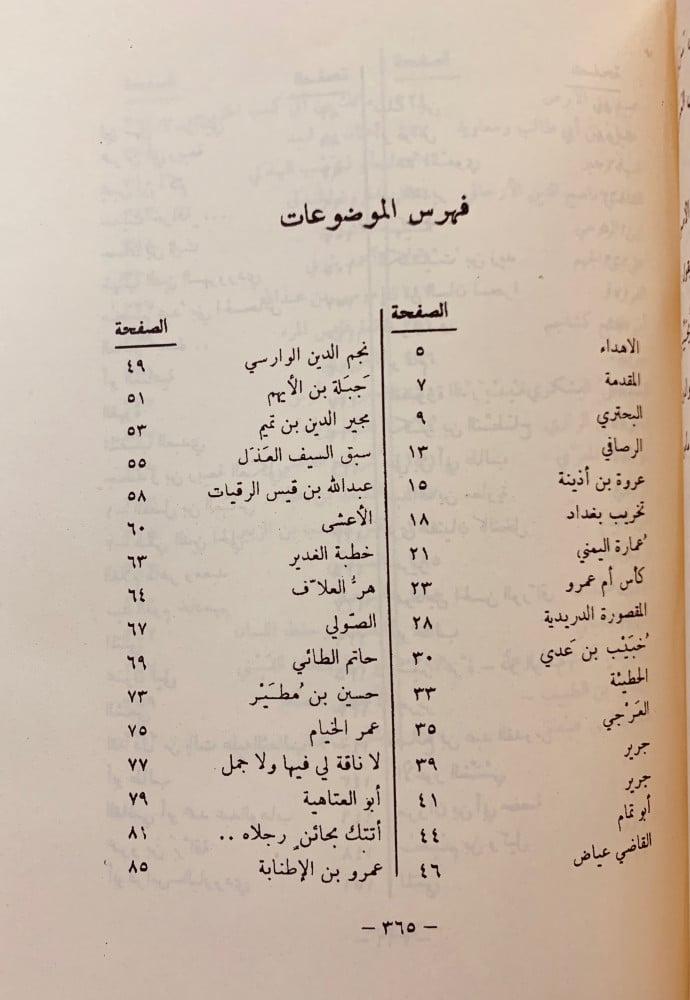 فهرس الموضوعات
الصفحة
الاهداء ٥
المقدمة ٧
البحتري ٩
الرصافي ١٣
عروة بن أذينة ١٥
تخريب بغداد ١٨
عُمارة اليمني ٢١
كأس أم عمرو ٢٣
المقصورة الدريدية ٢٨
خُبَيْب بن عَدي ٣٠
الحطيئة ٣٣
العَرْجي ٣٥
جرير ٣٩
جرير ٤١
أبو تمام ٤٤
القاضي عياض ٤٦
الصفحة
نجم الدين الوارسي ٤٩
جَبَلَة بن الأيهم ٥١
مجير الدين بن تميم ٥٣
سبق السيف العَذَل ٥٥
عبدالله بن قيس الرقيات ٥٨
الأعشى ٦٠
خطبة الغدير ٦٣
هرُّ العلاّف ٦٤
الصّولي ٦٧
حاتم الطائي ٦٩
حسين بن مُطَيْر ٧٣
عمر الخيام ٧٥
لا ناقة لي فيها ولا جمل ٧٧
أبو العتاهية ٧٩
أتتك بحائنٍ رجلاه .. ٨١
عمرو بن الإطنابة ٨٥
– ٣٦٥ –